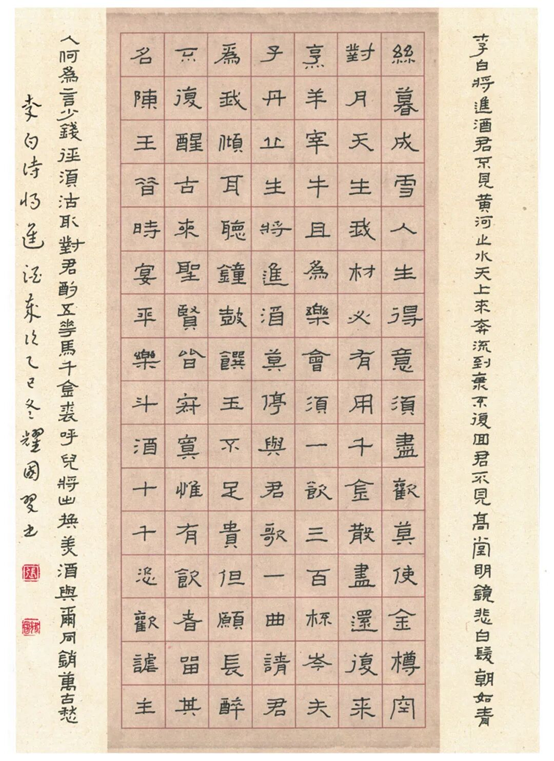 李白將進酒君不見黃河之水天上來奔流到衰不復回君不見高堂明鏡悲白髮朝如青
絲暮成雪人生得意須盡歡莫使金樽空
對月天生我材必有用千金散盡還復來
烹羊宰牛且爲樂會須一飲三百杯岑夫
子丹丘生將進酒莫停與君歌一曲請君
爲我傾耳聽鐘鼓饌玉不足貴但願長醉
不復醒古來聖賢皆寂寞惟有飲者留其
名陳王昔時宴平樂斗酒十千恣歡謔主
人何爲言少錢徑須沽取對君酌五花馬千金裘呼兒將出換美酒與爾同銷萬古愁
李白詩將進酒歲次乙巳冬耀國習書